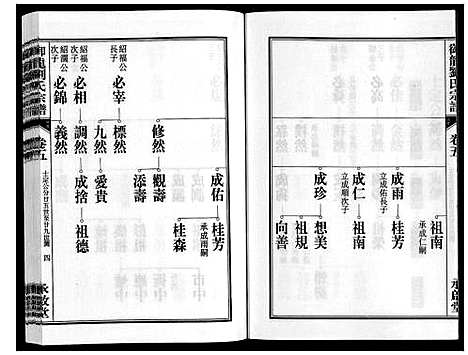 御龍劉氏宗譜
卷五
承啟堂
祖南
承成仁嗣
成雨
桂芳
立成佑長子
成仁
祖南
立成順次子
成珍
想美
祖規
向善
成佑
桂芳
承成雨嗣
桂森
修然
觀壽
添壽
紹福公長子
必宰
標然
九然
愛貴
紹福公次子
必相
調然
成捨
祖德
紹湄公次子
必錦
義然
御龍劉氏宗譜
卷五
四
承啟堂